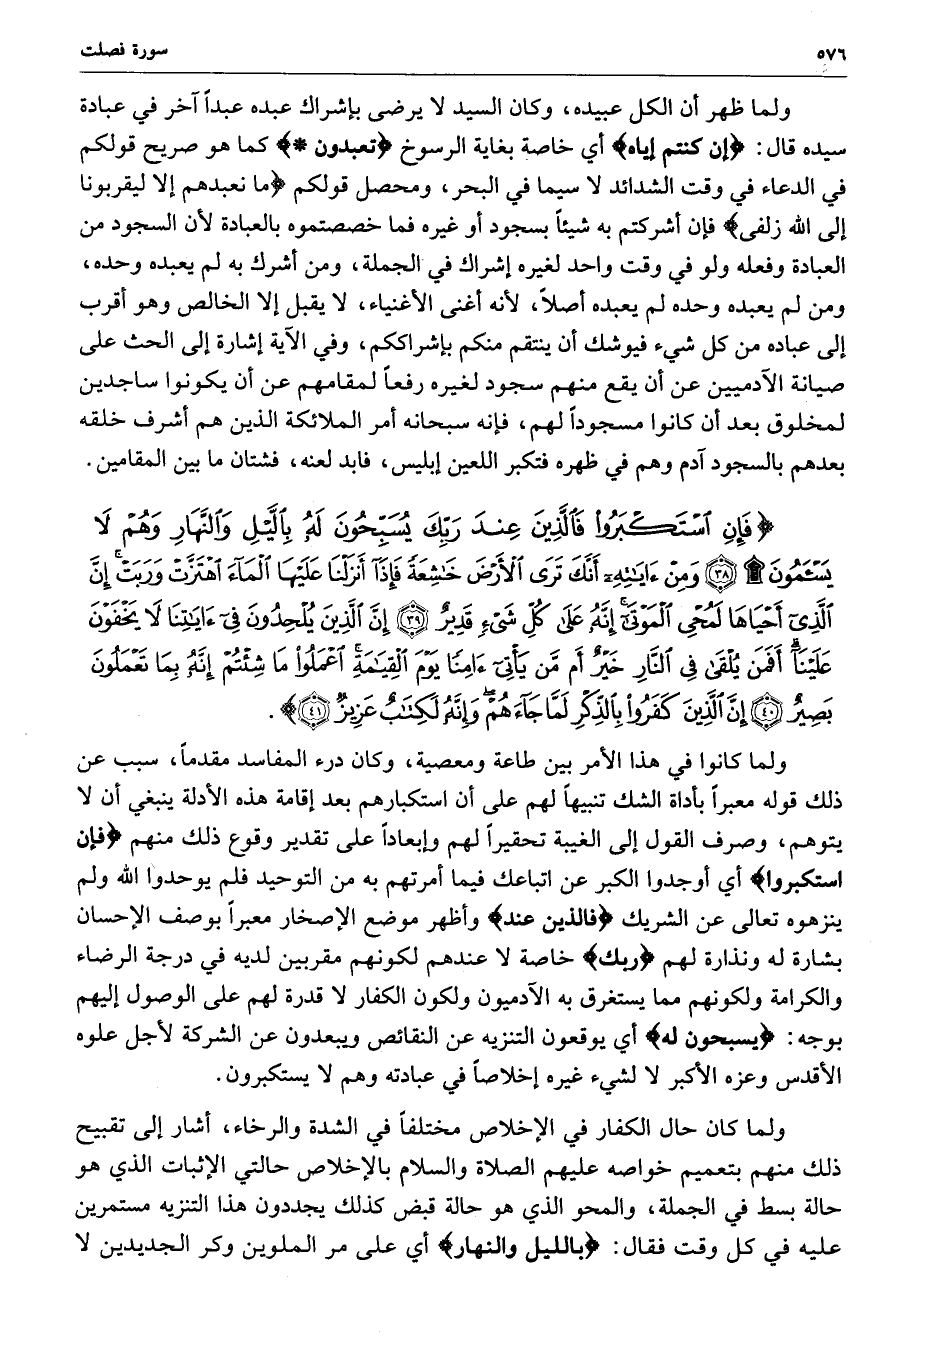 ٥٧٦ سورة فصلت
ولما ظهر أن الكل عبيده، وكان السيد لا يرضى بإشراك عبده عبداً آخر في عبادة
سيده قال: ﴿إن كنتم إياه﴾ أي خاصة بغاية الرسوخ ﴿تعبدون *﴾ كما هو صريح قولكم
في الدعاء في وقت الشدائد لا سيما في البحر، ومحصل قولكم ﴿ما نعبدهم إلا ليقربونا
إلى الله زلفى﴾ فإن أشركتم به شيئاً بسجود أو غيره فما خصصتموه بالعبادة لأن السجود من
العبادة وفعله ولو في وقت واحد لغيره إشراك في الجملة، ومن أشرك به لم يعبده وحده،
ومن لم يعبده وحده لم يعبده أصلاً، لأنه أغنى الأغنياء، لا يقبل إلا الخالص وهو أقرب
إلى عباده من كل شيء فيوشك أن ينتقم منكم بإشراككم، وفي الآية إشارة إلى الحث على
صيانة الآدميين عن أن يقع منهم سجود لغيره رفعاً لمقامهم عن أن يكونوا ساجدين
لمخلوق بعد أن كانوا مسجوداً لهم، فإنه سبحانه أمر الملائكة الذين هم أشرف خلقه
بعدهم بالسجود آدم وهم في ظهره فتكبر اللعين إبليس، فابد لعنه، فشتان ما بين المقامين.
﴿فَإِنِ ٱسْتَكْبَرُوا۟ فَٱلَّذِينَ عِندَ رَبِّكَ يُسَبِّحُونَ لَهُۥ بِٱلَّيْلِ وَٱلنَّهَارِ وَهُمْ لَا
يَسْـَٔمُونَ ۩ ٣٨ وَمِنْ ءَايَٰتِهِۦٓ أَنَّكَ تَرَى ٱلْأَرْضَ خَٰشِعَةً فَإِذَآ أَنزَلْنَا عَلَيْهَا ٱلْمَآءَ ٱهْتَزَّتْ وَرَبَتْ ۚ إِنَّ
ٱلَّذِىٓ أَحْيَاهَا لَمُحْىِ ٱلْمَوْتَىٰٓ ۚ إِنَّهُۥ عَلَىٰ كُلِّ شَىْءٍ قَدِيرٌ ٣٩ إِنَّ ٱلَّذِينَ يُلْحِدُونَ فِىٓ ءَايَٰتِنَا لَا يَخْفَوْنَ
عَلَيْنَآ ۗ أَفَمَن يُلْقَىٰ فِى ٱلنَّارِ خَيْرٌ أَم مَّن يَأْتِىٓ ءَامِنًا يَوْمَ ٱلْقِيَٰمَةِ ۚ ٱعْمَلُوا۟ مَا شِئْتُمْ إِنَّهُۥ بِمَا تَعْمَلُونَ
بَصِيرٌ ٤٠ إِنَّ ٱلَّذِينَ كَفَرُوا۟ بِٱلذِّكْرِ لَمَّا جَآءَهُمْ ۖ وَإِنَّهُۥ لَكِتَٰبٌ عَزِيزٌ ٤١﴾.
ولما كانوا في هذا الأمر بين طاعة ومعصية، وكان درء المفاسد مقدماً، سبب عن
ذلك قوله معبراً بأداة الشك تنبيهاً لهم على أن استكبارهم بعد إقامة هذه الأدلة ينبغي أن لا
يتوهم، وصرف القول إلى الغيبة تحقيراً لهم وإبعاداً على تقدير وقوع ذلك منهم ﴿فإن
استكبروا﴾ أي أوجدوا الكبر عن اتباعك فيما أمرتهم به من التوحيد فلم يوحدوا الله ولم
ينزهوه تعالى عن الشريك ﴿فالذين عند﴾ وأظهر موضع الإصخار معبراً بوصف الإحسان
بشارة له ونذارة لهم ﴿ربك﴾ خاصة لا عندهم لكونهم مقربين لديه في درجة الرضاء
والكرامة ولكونهم مما يستغرق به الآدميون ولكون الكفار لا قدرة لهم على الوصول إليهم
بوجه: ﴿يسبحون له﴾ أي يوقعون التنزيه عن النقائص ويبعدون عن الشركة لأجل علوه
الأقدس وعزه الأكبر لا لشيء غيره إخلاصاً في عبادته وهم لا يستكبرون.
ولما كان حال الكفار في الإخلاص مختلفاً في الشدة والرخاء، أشار إلى تقبيح
ذلك منهم بتعميم خواصه عليهم الصلاة والسلام بالإخلاص حالتي الإثبات الذي هو
حالة بسط في الجملة، والمحو الذي هو حالة قبض كذلك يجددون هذا التنزيه مستمرين
عليه في كل وقت فقال: ﴿بالليل والنهار﴾ أي على مر الملوين وكر الجديدين لا